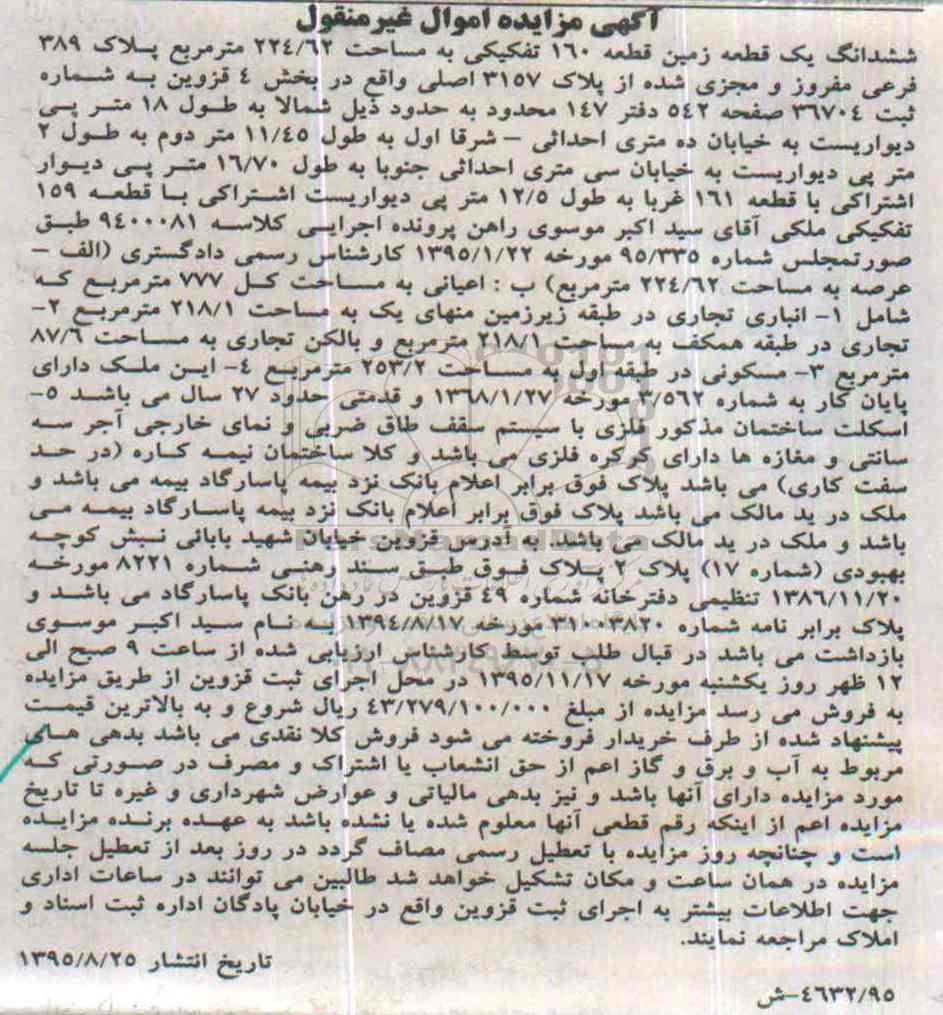 آگهی مزایده اموال غیرمنقول
ششدانگ یک قطعه زمین قطعه ۱۶۰ تفکیکی به مساحت ۲۲۴/۶۲ مترمربع پلاک ۳۸۹
فرعی مفروز و مجزی شده از پلاک ۳۱۵۷ اصلی واقع در بخش ۴ قزوین به شماره
ثبت ۳۶۷۰۴ صفحه ۵۴۲ دفتر ۱۴۷ محدود به حدود ذیل شمالا به طول ۱۸ متر پی
دیواریست به خیابان ده متری احداثی – شرقا اول به طول ۱۱/۴۵ متر دوم به طول ۲
متر پی دیواریست به خیابان سی متری احداثی جنوبا به طول ۱۶/۷۰ متر پی دیوار
اشتراکی با قطعه ۱۶۱ غربا به طول ۱۲/۵ متر پی دیواریست اشتراکی با قطعه ۱۵۹
تفکیکی ملکی آقای سید اکبر موسوی راهن پرونده اجرایی کلاسه ۹۴۰۰۰۸۱ طبق
صورتمجلس شماره ۹۵/۳۳۵ مورخه ۱۳۹۵/۱/۲۲ کارشناس رسمی دادگستری (الف –
عرصه به مساحت ۲۲۴/۶۲ مترمربع) ب : اعیانی به مساحت کل ۷۷۷ مترمربع که
شامل ۱- انباری تجاری در طبقه زیرزمین منهای یک به مساحت ۲۱۸/۱ مترمربع ۲-
تجاری در طبقه همکف به مساحت ۲۱۸/۱ مترمربع و بالکن تجاری به مساحت ۸۷/۶
مترمربع ۳- مسکونی در طبقه اول به مساحت ۲۵۳/۲ مترمربع ۴- این ملک دارای
پایان کار به شماره ۳/۵۶۲ مورخه ۱۳۶۸/۱/۲۷ و قدمتی حدود ۲۷ سال می باشد ۵-
اسکلت ساختمان مذکور فلزی با سیستم سقف طاق ضربی و نمای خارجی آجر سه
سانتی و مغازه ها دارای کرکره فلزی می باشد و کلا ساختمان نیمه کاره (در حد
سفت کاری) می باشد پلاک فوق برابر اعلام بانک نزد بیمه پاسارگاد بیمه می باشد و
ملک در ید مالک می باشد پلاک فوق برابر اعلام بانک نزد بیمه پاسارگاد بیمه می
باشد و ملک در ید مالک می باشد. به آدرس قزوین خیابان شهید بابائی نبش کوچه
بهبودی (شماره ۱۷) پلاک ۲ پلاک فوق طبق سند رهنی شماره ۸۲۲۱ مورخه
۱۳۸۶/۱۱/۲۰ تنظیمی دفترخانه شماره ۴۹ قزوین در رهن بانک پاسارگاد می باشد و
پلاک برابر نامه شماره ۳۱۰۰۳۸۲۰ مورخه ۱۳۹۴/۸/۱۷ به نام سید اکبر موسوی
بازداشت می باشد در قبال طلب توسط کارشناس ارزیابی شده از ساعت ۹ صبح الی
۱۲ ظهر روز یکشنبه مورخه ۱۳۹۵/۱۱/۱۷ در محل اجرای ثبت قزوین از طریق مزایده
به فروش می رسد مزایده از مبلغ ۴۳/۲۷۹/۱۰۰/۰۰۰ ریال شروع و به بالاترین قیمت
پیشنهاد شده از طرف خریدار فروخته می شود فروش کلا نقدی می باشد بدهی های
مربوط به آب و برق و گاز اعم از حق انشعاب یا اشتراک و مصرف در صورتی که
مورد مزایده دارای آنها باشد و نیز بدهی مالیاتی و عوارض شهرداری و غیره تا تاریخ
مزایده اعم از اینکه رقم قطعی آنها معلوم شده یا نشده باشد به عهده برنده مزایده
است و چنانچه روز مزایده با تعطیل رسمی مصاف گردد در روز بعد از تعطیل جلسه
مزایده در همان ساعت و مکان تشکیل خواهد شد طالبین می توانند در ساعات اداری
جهت اطلاعات بیشتر به اجرای ثبت قزوین واقع در خیابان پادگان اداره ثبت اسناد و
املاک مراجعه نمایند.
تاریخ انتشار ۱۳۹۵/۸/۲۵
۴۶۳۲/۹۵-ش
ParsNamadData